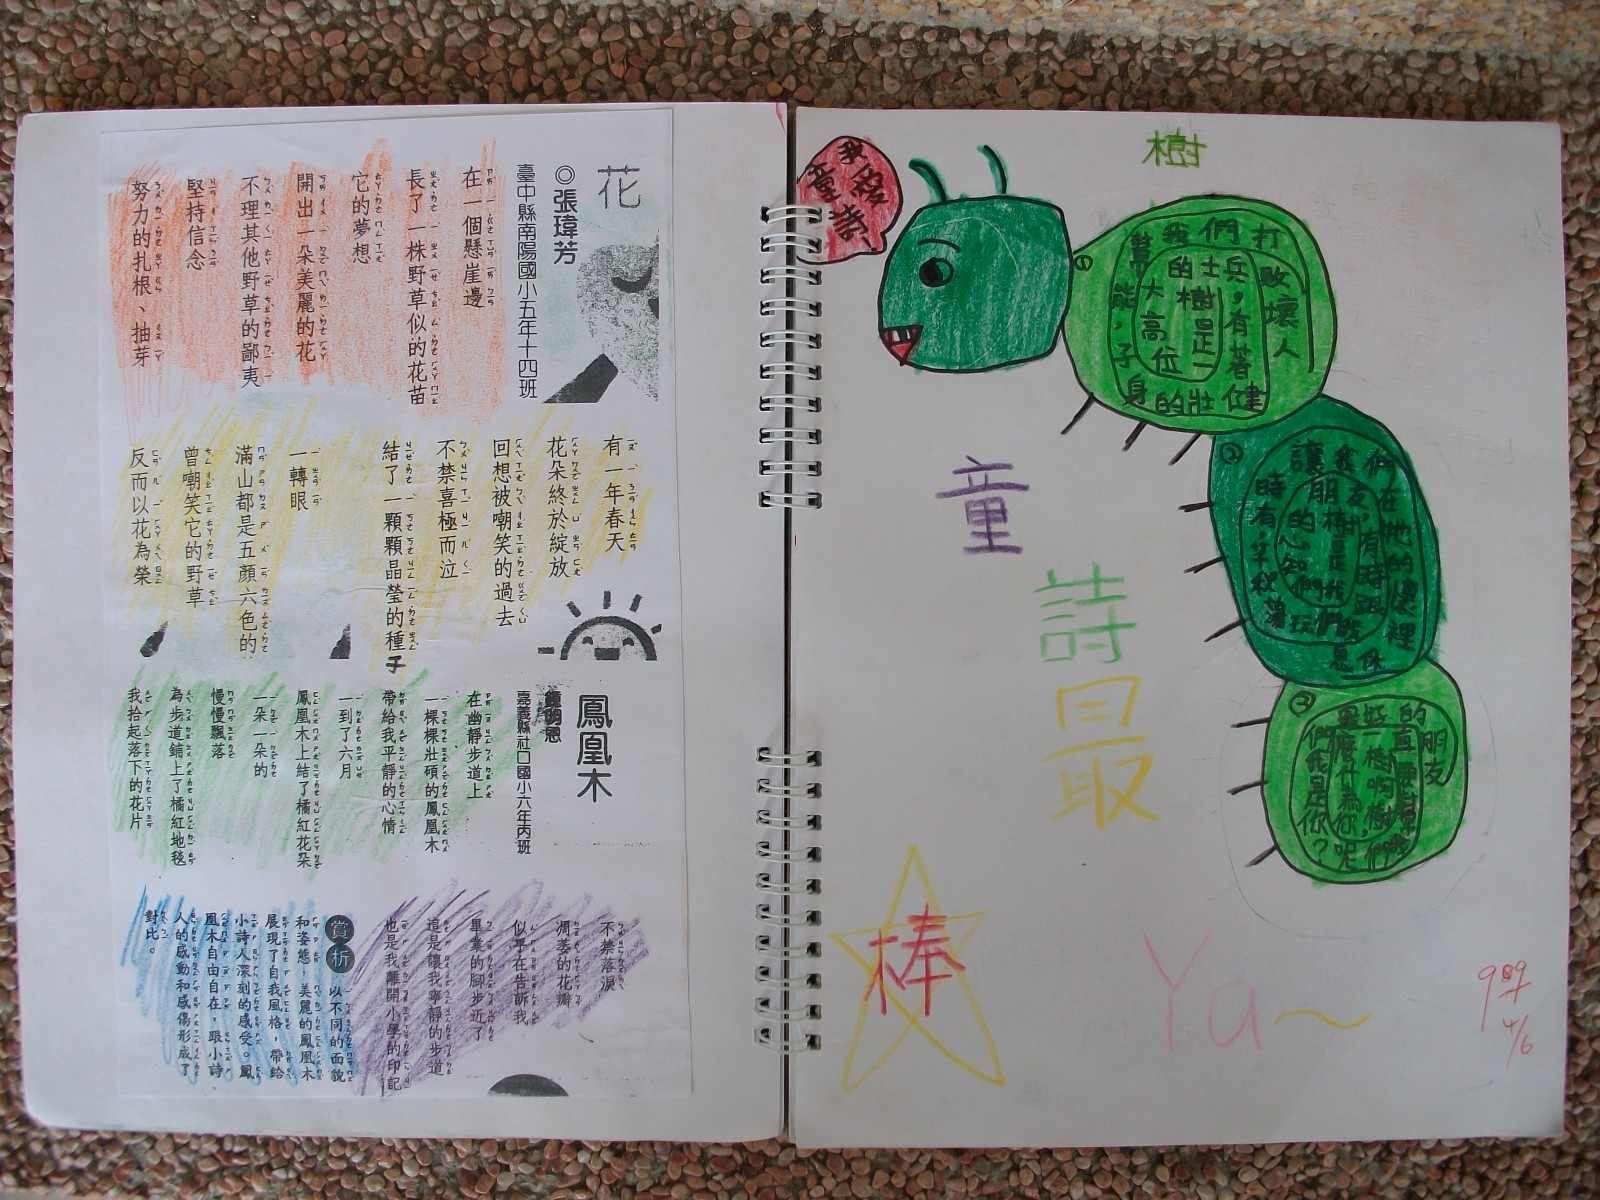 花
◎張瑋芳
臺中縣南陽國小五年十四班
在一個懸崖邊
長了一株野草似的花苗
它的夢想
開出一朵美麗的花
不理其他野草的鄙夷
堅持信念
努力的扎根、抽芽
有一年春天
花朵終於綻放
回想被嘲笑的過去
不禁喜極而泣
結了一顆顆晶瑩的種子
一轉眼
滿山都是五顏六色的
曾嘲笑它的野草
反而以花為榮
鳳凰木
嘉義縣社口國小六年丙班
在幽靜步道上
一棵棵壯碩的鳳凰木
帶給我平靜的心情
一到了六月
鳳凰木上結了橘紅花朵
一朵一朵的
慢慢飄落
為步道鋪上了橘紅地毯
我拾起落下的花片
不禁落淚
凋萎的花瓣
似乎在告訴我
畢業的腳步近了
這是讓我寧靜的步道
也是我離開小學的印記
賞析
以不同的面貌
和姿態，美麗的鳳凰木
展現了自我風格，帶給
小詩人深刻的感受。鳳
凰木自由自在，跟小詩
人的感動和感傷形成了
對比。
我愛童詩！
樹
①
樹是一位高大的士兵，有著健壯的身子，能幫我們打敗壞人
②
③
童
詩
最
棒
Ya～
989
4/6